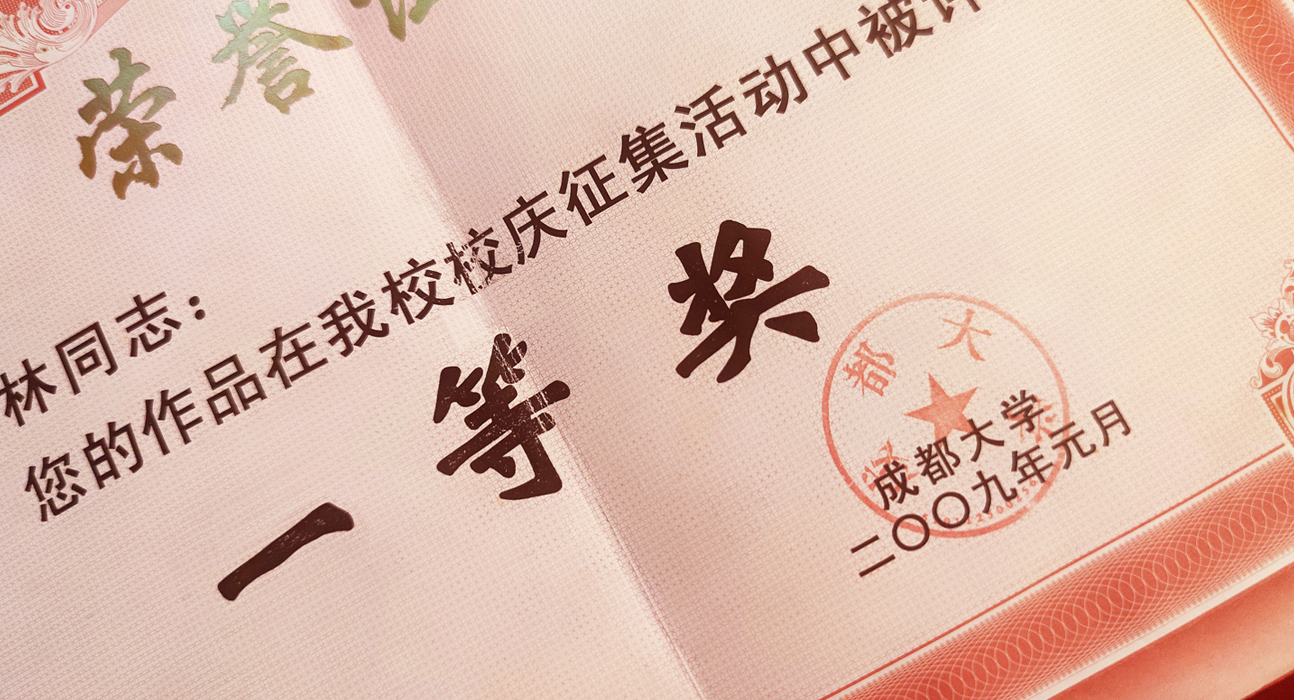 荣誉证
林同志：
您的作品在我校校庆征集活动中被评
一等奖
成都大学
二〇〇九年元月
成都大学